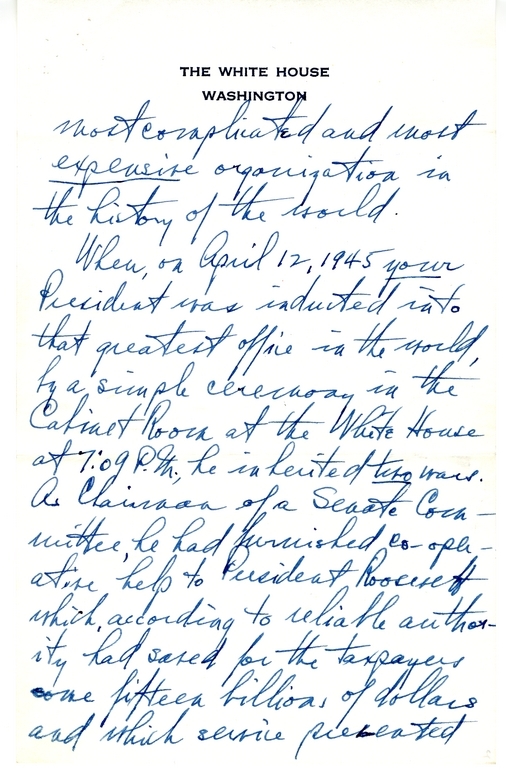 THE WHITE HOUSE
WASHINGTON
most complicated and most
expensive organization in
the history of the world.
When, on April 12, 1945 your
President was inducted into
that greatest office in the world,
by a simple ceremony in the
Cabinet Room at the White House
at 7:09 P.M., he inherited two wars.
As Chairman of a Senate Com-
mittee, he had furnished co-oper-
ative help to President Roosevelt
which, according to reliable author-
ity had saved for the taxpayers
some fifteen billions of dollars
and which service prevented